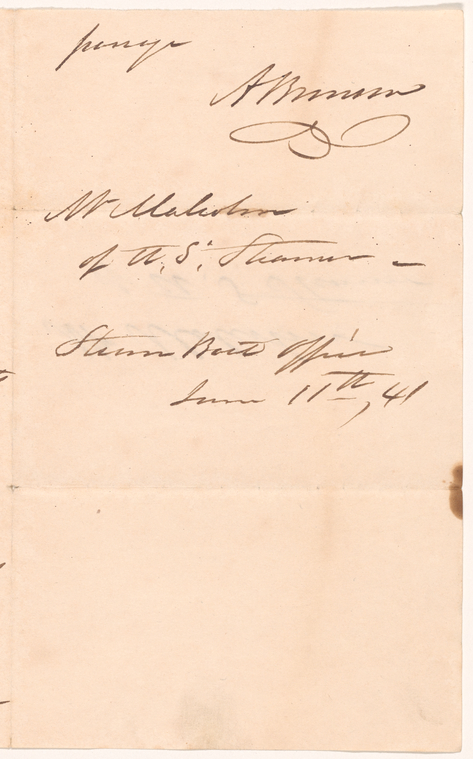 passage
A Brunson
Mr Malcolm
of U. S. Steamer –
Steam Boat Office
June 11th, 41